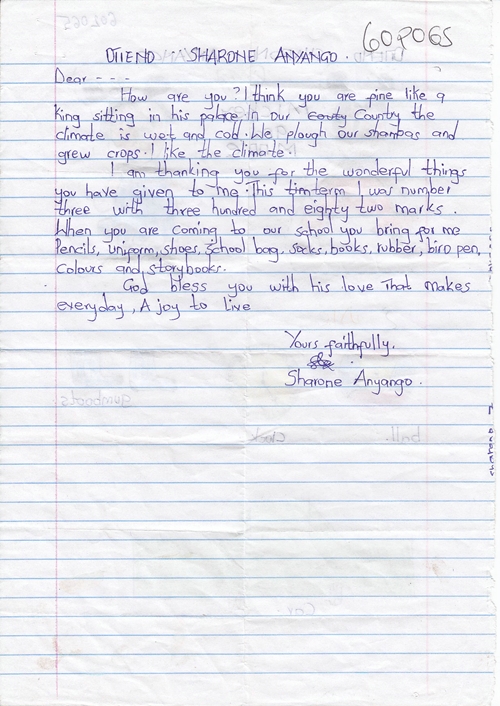 602065
OTIENO SHARONE ANYANGO.
Dear - - -
How are you? I think you are fine like a
king sitting in his palace. In our Couty Country the
climate is wet and cold. We plough our shambas and
grew crops. I like the climate.
I am thanking you for the wonderful things
you have given to me. This tim term I was number
three with three hundred and eighty two marks.
When you are coming to our school you bring for me
Pencils, uniform, shoes, school bag, socks, books, rubber, biro pen,
Colours and, storybooks.
God bless you with his love That makes
everyday, A joy to live
Yours faithfully.
Sharone Anyango.